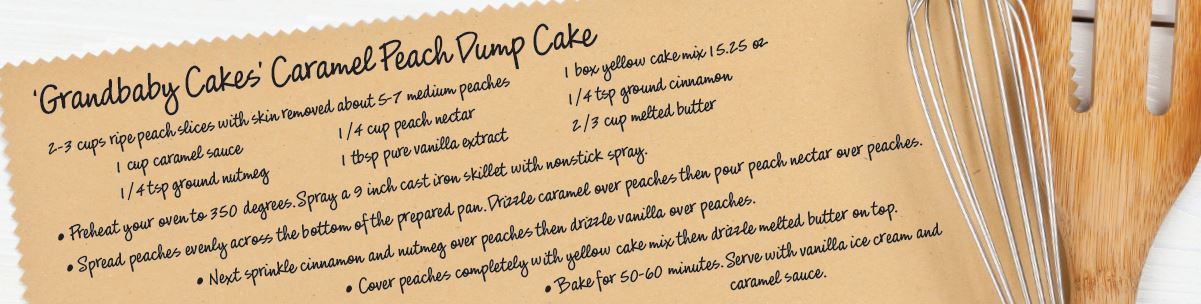 'Grandbaby Cakes' Caramel Peach Dump Cake
2-3 cups ripe peach slices with skin removed about 5-7 medium peaches
1 cup caramel sauce
1/4 tsp ground nutmeg
1/4 cup peach nectar
1 tbsp pure vanilla extract
1 box yellow cake mix 15.25 oz
1/4 tsp ground cinnamon
2/3 cup melted butter
• Preheat your oven to 350 degrees. Spray a 9 inch cast iron skillet with nonstick spray.
• Spread peaches evenly across the bottom of the prepared pan. Drizzle caramel over peaches then pour peach nectar over peaches.
• Next sprinkle cinnamon and nutmeg over peaches then drizzle vanilla over peaches.
• Cover peaches completely with yellow cake mix then drizzle melted butter on top.
• Bake for 50-60 minutes. Serve with vanilla ice cream and
caramel sauce.